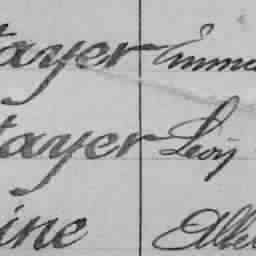 ayer Emma
ayer Léoy
ine Albe